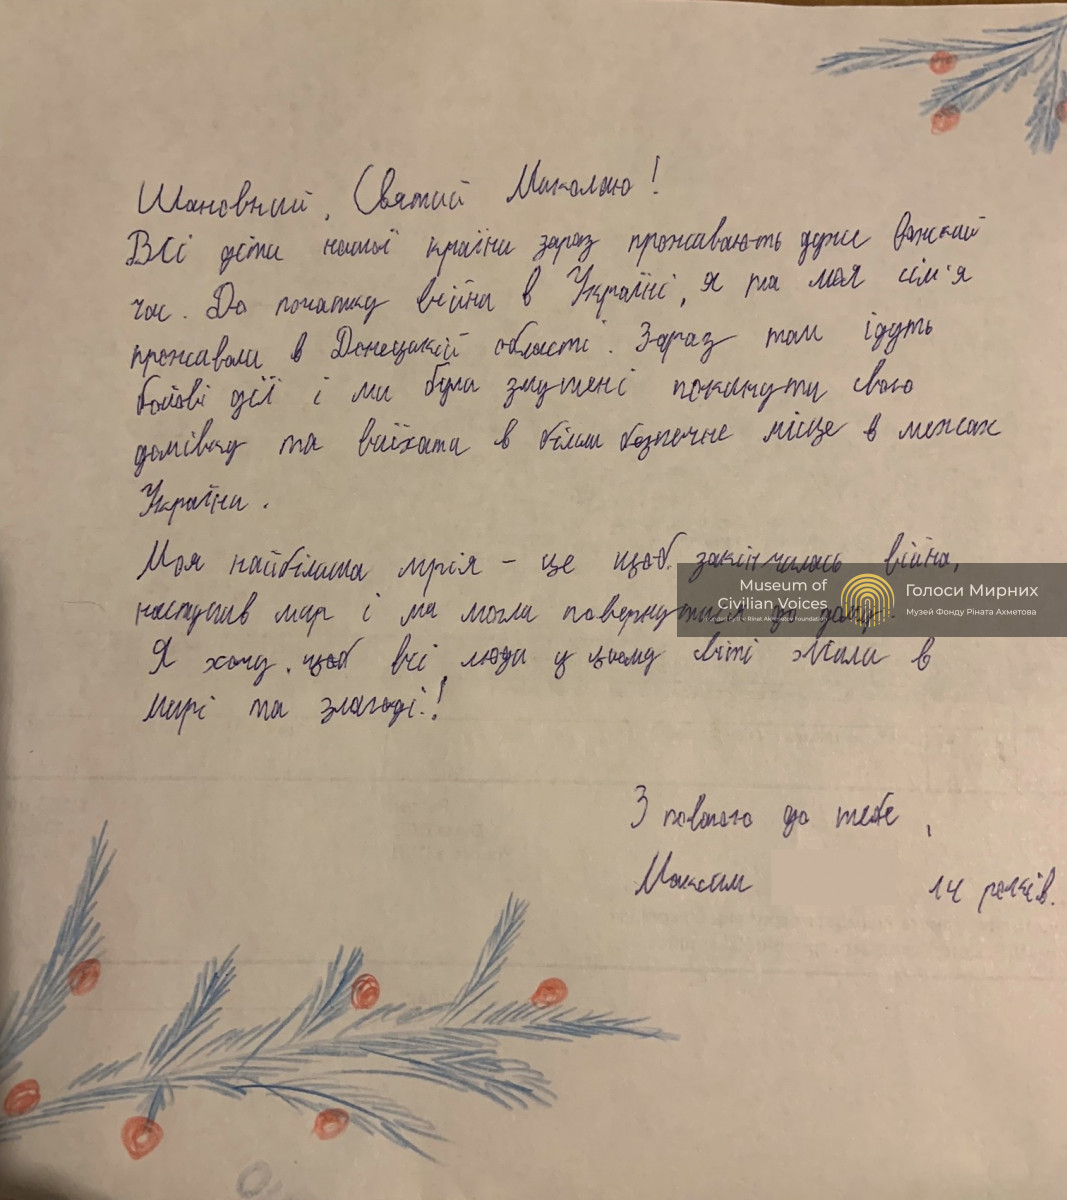 Шановний, Святий Миколаю!
Всі діти нашої країни зараз проживають дуже важкий
час. До початку війни в Україні, я та моя сім'я
проживали в Донецькій області. Зараз там ідуть
бойові дії і ми були змушені покинути свою
домівку та виїхати в більш безпечне місце в межах
України.
Моя найбільша мрія – це щоб закінчилась війна,
наступив мир і ми могли повернутися до дому.
Я хочу, щоб всі люди у цьому світі жили в
мирі та злагоді!
З повагою до тебе,
Максим 14 років.
Museum of
Civilian Voices
Founded by the Rinat Akhmetov Foundation
Голоси Мирних
Музей Фонду Ріната Ахметова